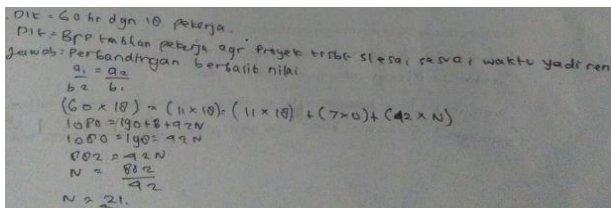 . Dit = 60 hr dgn 18 pekerja.
Dit = Brp tmbhan pekerja agr Proyek trsbt slesai sesuai waktu
Jawab : Perbandingan berbalik nilai
a1 = a2
b2 b1
(60 x 18) = (11 x 18) = (11 x 18) + (7x0) + (42 x N)
1080 = 198 + 42N
1080 = 198 = 42N
882 = 42N
N = 882
42
N = 21.